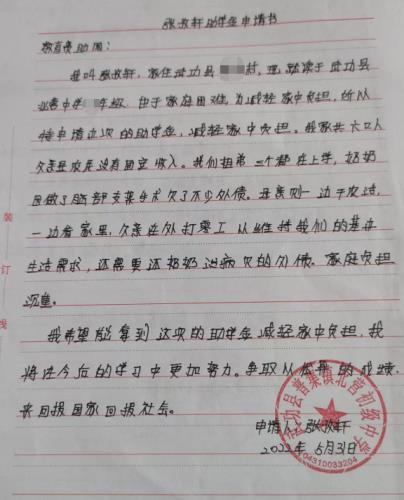 张牧轩助学金申请书
教育资助园:
我叫张牧轩,家住武功县 村,现就读于武功县
北营中学 年级。由于家庭困难,为减轻家中负担,所以
特申请这次的助学金,减轻家中负担。我家共六口人
父亲是农民没有固定收入。我们姐弟三个都在上学,奶奶
因做了脑部支架手术欠了不少外债。母亲则一边干农活,
一边看家里,父亲在外打零工以维持我们的基本
生活需求,还需要还奶奶治病欠的欠债。家庭负担
沉重。
我希望能拿到这次的助学金减轻家中负担,我
将在今后的学习中更加努力。争取以优异的成绩,
来回报国家回报社会。
申请人:张牧轩
2022年 5月31日
武功县普集镇北营初级中学
04310033204
装
订
线